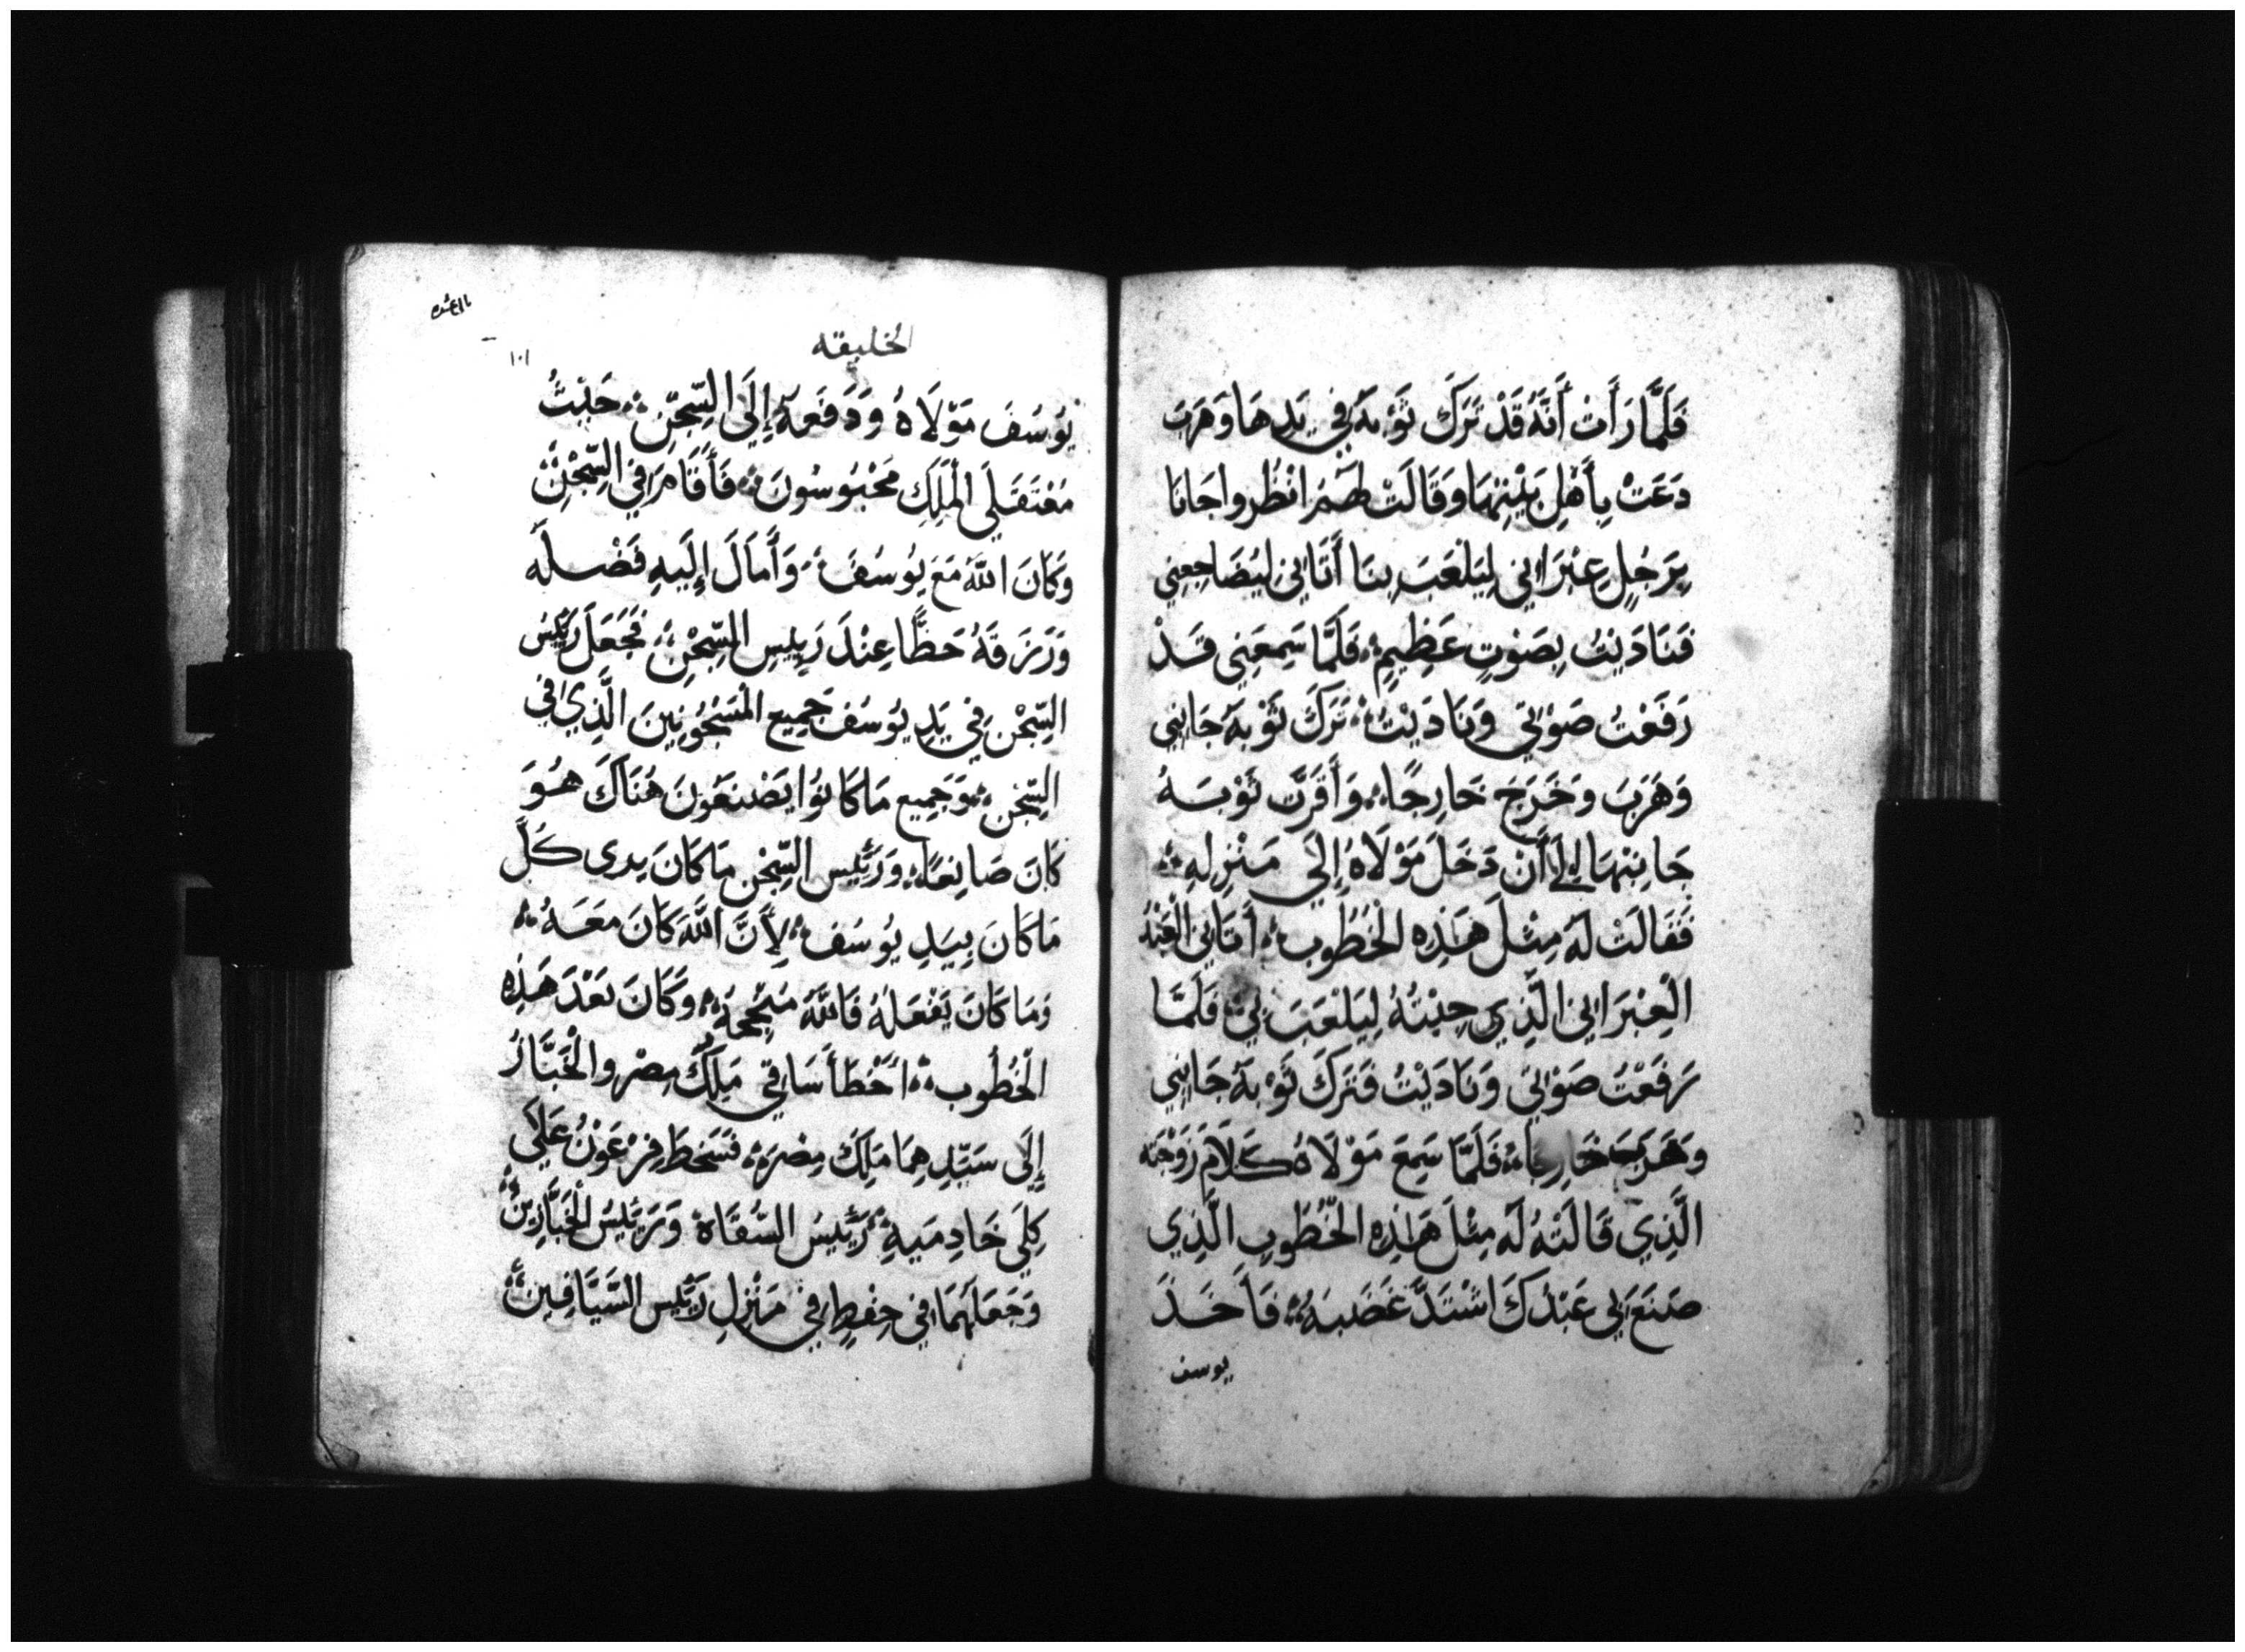 فَلَمَّا رَأَتْ أَنَّهُ قَدْ تَرَكَ ثَوْبَهُ فِي يَدِهَا وَهَرَبَ
دَعَتْ بِأَهْلِ بَيْتِهَا وَقَالَتْ لَهُمْ انْظُروا جَانَا
بِرَجُلٍ عِبْرَانِي لِيَلْعَبَ بِنَا أَتَانِي لِيُضَاجِعِنِي
فَنَادَيْتُ بِصَوْتٍ عَظِيمٍ فَلَمَّا سَمِعَنِي قَدْ
رَفَعْتُ صَوْتِي وَنَادَيْتُ تَرَكَ ثَوْبَهُ جَانِبِي
وَهَرَبَ وَخَرَجَ خَارِجًا وَأَقَرَّتْ ثَوْبَهُ
جَانِبْهَا إِلَى أَنْ دَخَلَ مَوْلَاهُ إِلَى مَنْزِلِهِ
فَقَالَتْ لَهُ مِثْلَ هَذِهِ الْخُطُوبِ أَتَانِي الْعَبْدُ
الْعِبْرَانِي الَّذِي جِبْتُهُ لِيَلْعَبَ بِي فَلَمَّا
رَفَعْتُ صَوْتِي وَنَادَيْتُ فَتَرَكَ ثَوْبَهُ جَانِبِي
وَهَرَبَ خَارِجًا فَلَمَّا سَمِعَ مَوْلَاهُ كَلَامَ زَوْجَتِه
الَّذِي قَالَتْهُ لَهُ مِثْلَ هَذِهِ الْخُطُوبِ الَّذِي
صَنَعَ بِي عَبْدُكَ اشْتَدَّ غَضَبَهُ فَأَخَذَ
يوسف
الخليقه
١٠١
يُوسُفَ مَوْلَاهُ وَدَفَعَهُ إِلَى السِّجْنِ حَيْثُ
مُعْتَقَلَي الْمَلِكِ مَحْبُوسُونَ فَأَقَامَ فِي السِّجْنِ
وَكَانَ اللَّهُ مَعَ يُوسُفَ وَأَمَالَ إِلَيهِ فَضْلَهُ
وَرَزَقَهُ حَظًّا عِنْدَ رَيِيسِ السِّجْنِ فَجَعَلَ رَئِيسُ
السِّجْنِ فِي يَدِ يُوسُفَ جَمِيعَ الْمَسْجُونِينَ الَّذِي فِي
السِّجْنِ وَجَمِيع مَا كَانُوا يَصْنَعُونَ هُنَاكَ هُوَ
كَانَ صَانِعًا وَرَئِيس السِّجْنِ مَا كَانَ يدرى كُلَّ
مَا كَانَ بِيَدِ يُوسُفَ لِأَنَّ اللَّهَ كَانَ مَعَهُ
وَمَا كَانَ يَفْعَلُهُ فَاللَّهُ مُنْجِحُهُ وَكَانَ بَعْدَ هَذِهِ
الْخُطُوبِ أَخْطَأَ سَاقِي مَلِكِ مِصْرَ وَالْخَبَّازُ
إِلَى سَيِّدِهِمَا مَلِكِ مِصْرَ فَسَخِطَ فِرْعَوْنُ عَلَى
كِلَي خَادِمَيهِ رَئِيسُ السُّقَاة وَرَئِيسُ الْخَبَّازِينَ
وَجَعَلَهُمَا فِي حِفْظٍ فِي مَنْزِلِ رَئِيسِ السَّيَّافِينَ